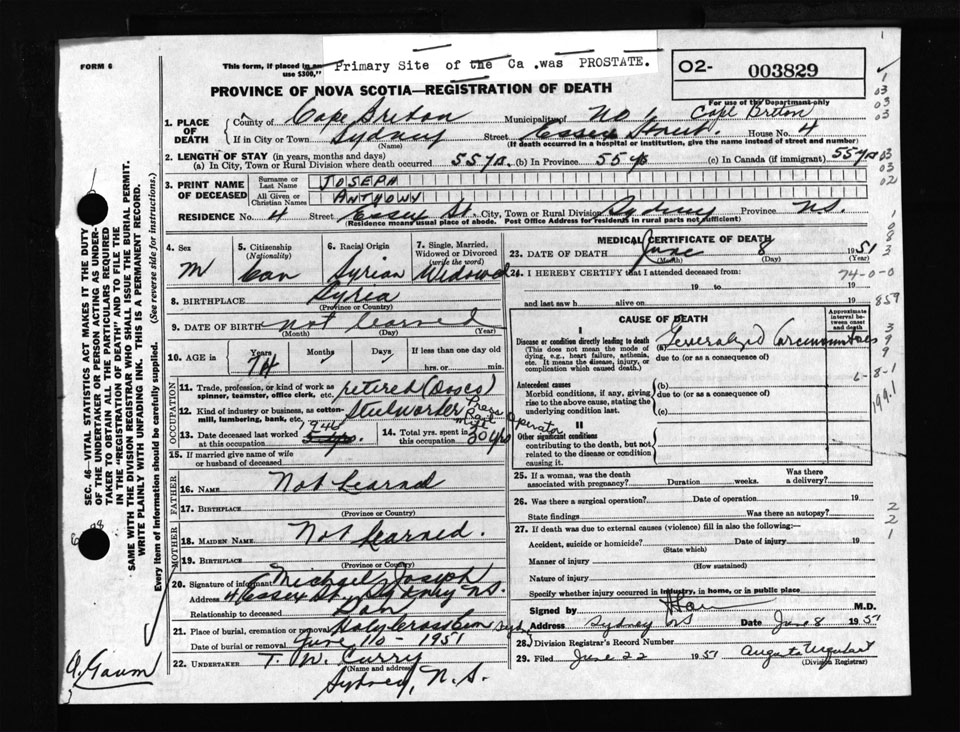 FORM 6
This form, if placed in an
use $300,"
Primary Site of the Ca .was PROSTATE.
O2- 003829
For use of the Department only
PROVINCE OF NOVA SCOTIA—REGISTRATION OF DEATH
1. PLACE OF DEATH
County of Cape Breton Municipality of No 1 Cape Breton
If in City or Town Sydney Street Essex Street. House No. 4
(Name) (If death occurred in a hospital or institution, give the name instead of street and number)
2. LENGTH OF STAY (in years, months and days)
(a) In City, Town or Rural Division where death occurred 55 yrs. (b) In Province 55 yrs (c) In Canada (if immigrant) 55 yrs
3. PRINT NAME OF DECEASED
Surname or Last Name JOSEPH
All Given or Christian Names ANTHONY
RESIDENCE No. 4 Street Essex St. City, Town or Rural Division Sydney Province N.S.
(Residence means usual place of abode. Post Office Address for residents in rural parts not sufficient)
4. Sex M
5. Citizenship (Nationality) Can
6. Racial Origin Syrian
7. Single, Married, Widowed or Divorced (write the word) Widowed
8. BIRTHPLACE Syria
(Province or Country)
9. DATE OF BIRTH not learned
(Month) (Day) (Year)
10. AGE in Years 74 Months Days If less than one day hrs. or min.
OCCUPATION
11. Trade, profession or kind of work as spinner, teamster, office clerk, etc. retired (Dosco)
12. Kind of industry or business, as cotton-mill, lumbering, bank, etc. Steelworker Press Operator Rail Mill
13. Date deceased last worked at this occupation 1946
14. Total yrs. spent in this occupation 30 yrs
15. If married give name of wife or husband of deceased
FATHER
16. NAME Not Learned
17. BIRTHPLACE
(Province or Country)
MOTHER
18. MAIDEN NAME Not Learned.
19. BIRTHPLACE
(Province or Country)
20. Signature of informant Michael Joseph
Address 4 Essex St. Sydney N.S.
Relationship to deceased Son
21. Place of burial, cremation or removal Holy Cross Cem Sydney
Date of burial or removal June 10 - 1951
22. UNDERTAKER T. W. Curry
(Name and address)
Sydney, N.S.
MEDICAL CERTIFICATE OF DEATH
23. DATE OF DEATH June 8 1951
(Month) (Day) (Year)
24. I HEREBY CERTIFY that I attended deceased from:
19 to 19
and last saw h alive on 19
CAUSE OF DEATH
Approximate interval between onset and death
I
Disease or condition directly leading to death
(This does not mean the mode of dying, e.g., heart failure, asthenia, etc. It means the disease, injury, or complication which caused death.)
(a) Generalized Carcinomatosis
due to (or as a consequence of)
Antecedent causes
Morbid conditions, if any, giving rise to the above cause, stating the underlying condition last.
(b)
due to (or as a consequence of)
(c)
II
Other significant conditions
contributing to the death, but not related to the disease or condition causing it.
25. If a woman, was the death associated with pregnancy? Duration weeks. Was there a delivery?
26. Was there a surgical operation? Date of operation 19
State findings Was there an autopsy?
27. If death was due to external causes (violence) fill in also the following:—
Accident, suicide or homicide? Date of injury 19
(State which)
Manner of injury
(How sustained)
Nature of injury
Specify whether injury occurred in industry, in home, or in public place
Signed by M.D.
Address Sydney NS Date June 8 1951
28. Division Registrar's Record Number
29. Filed June 22 1951
(Division Registrar)
74-0-0
859
6-8-1
199.1
SEC. 46—VITAL STATISTICS ACT MAKES IT THE DUTY
OF THE UNDERTAKER OR PERSON ACTING AS UNDER-
TAKER TO OBTAIN ALL THE PARTICULARS REQUIRED
IN THE "REGISTRATION OF DEATH" AND TO FILE THE
SAME WITH THE DIVISION REGISTRAR WHO SHALL ISSUE THE BURIAL PERMIT.
WRITE PLAINLY WITH UNFADING INK. THIS IS A PERMANENT RECORD.
Every item of Information should be carefully supplied. (See reverse side for instructions.)
A. Gaum